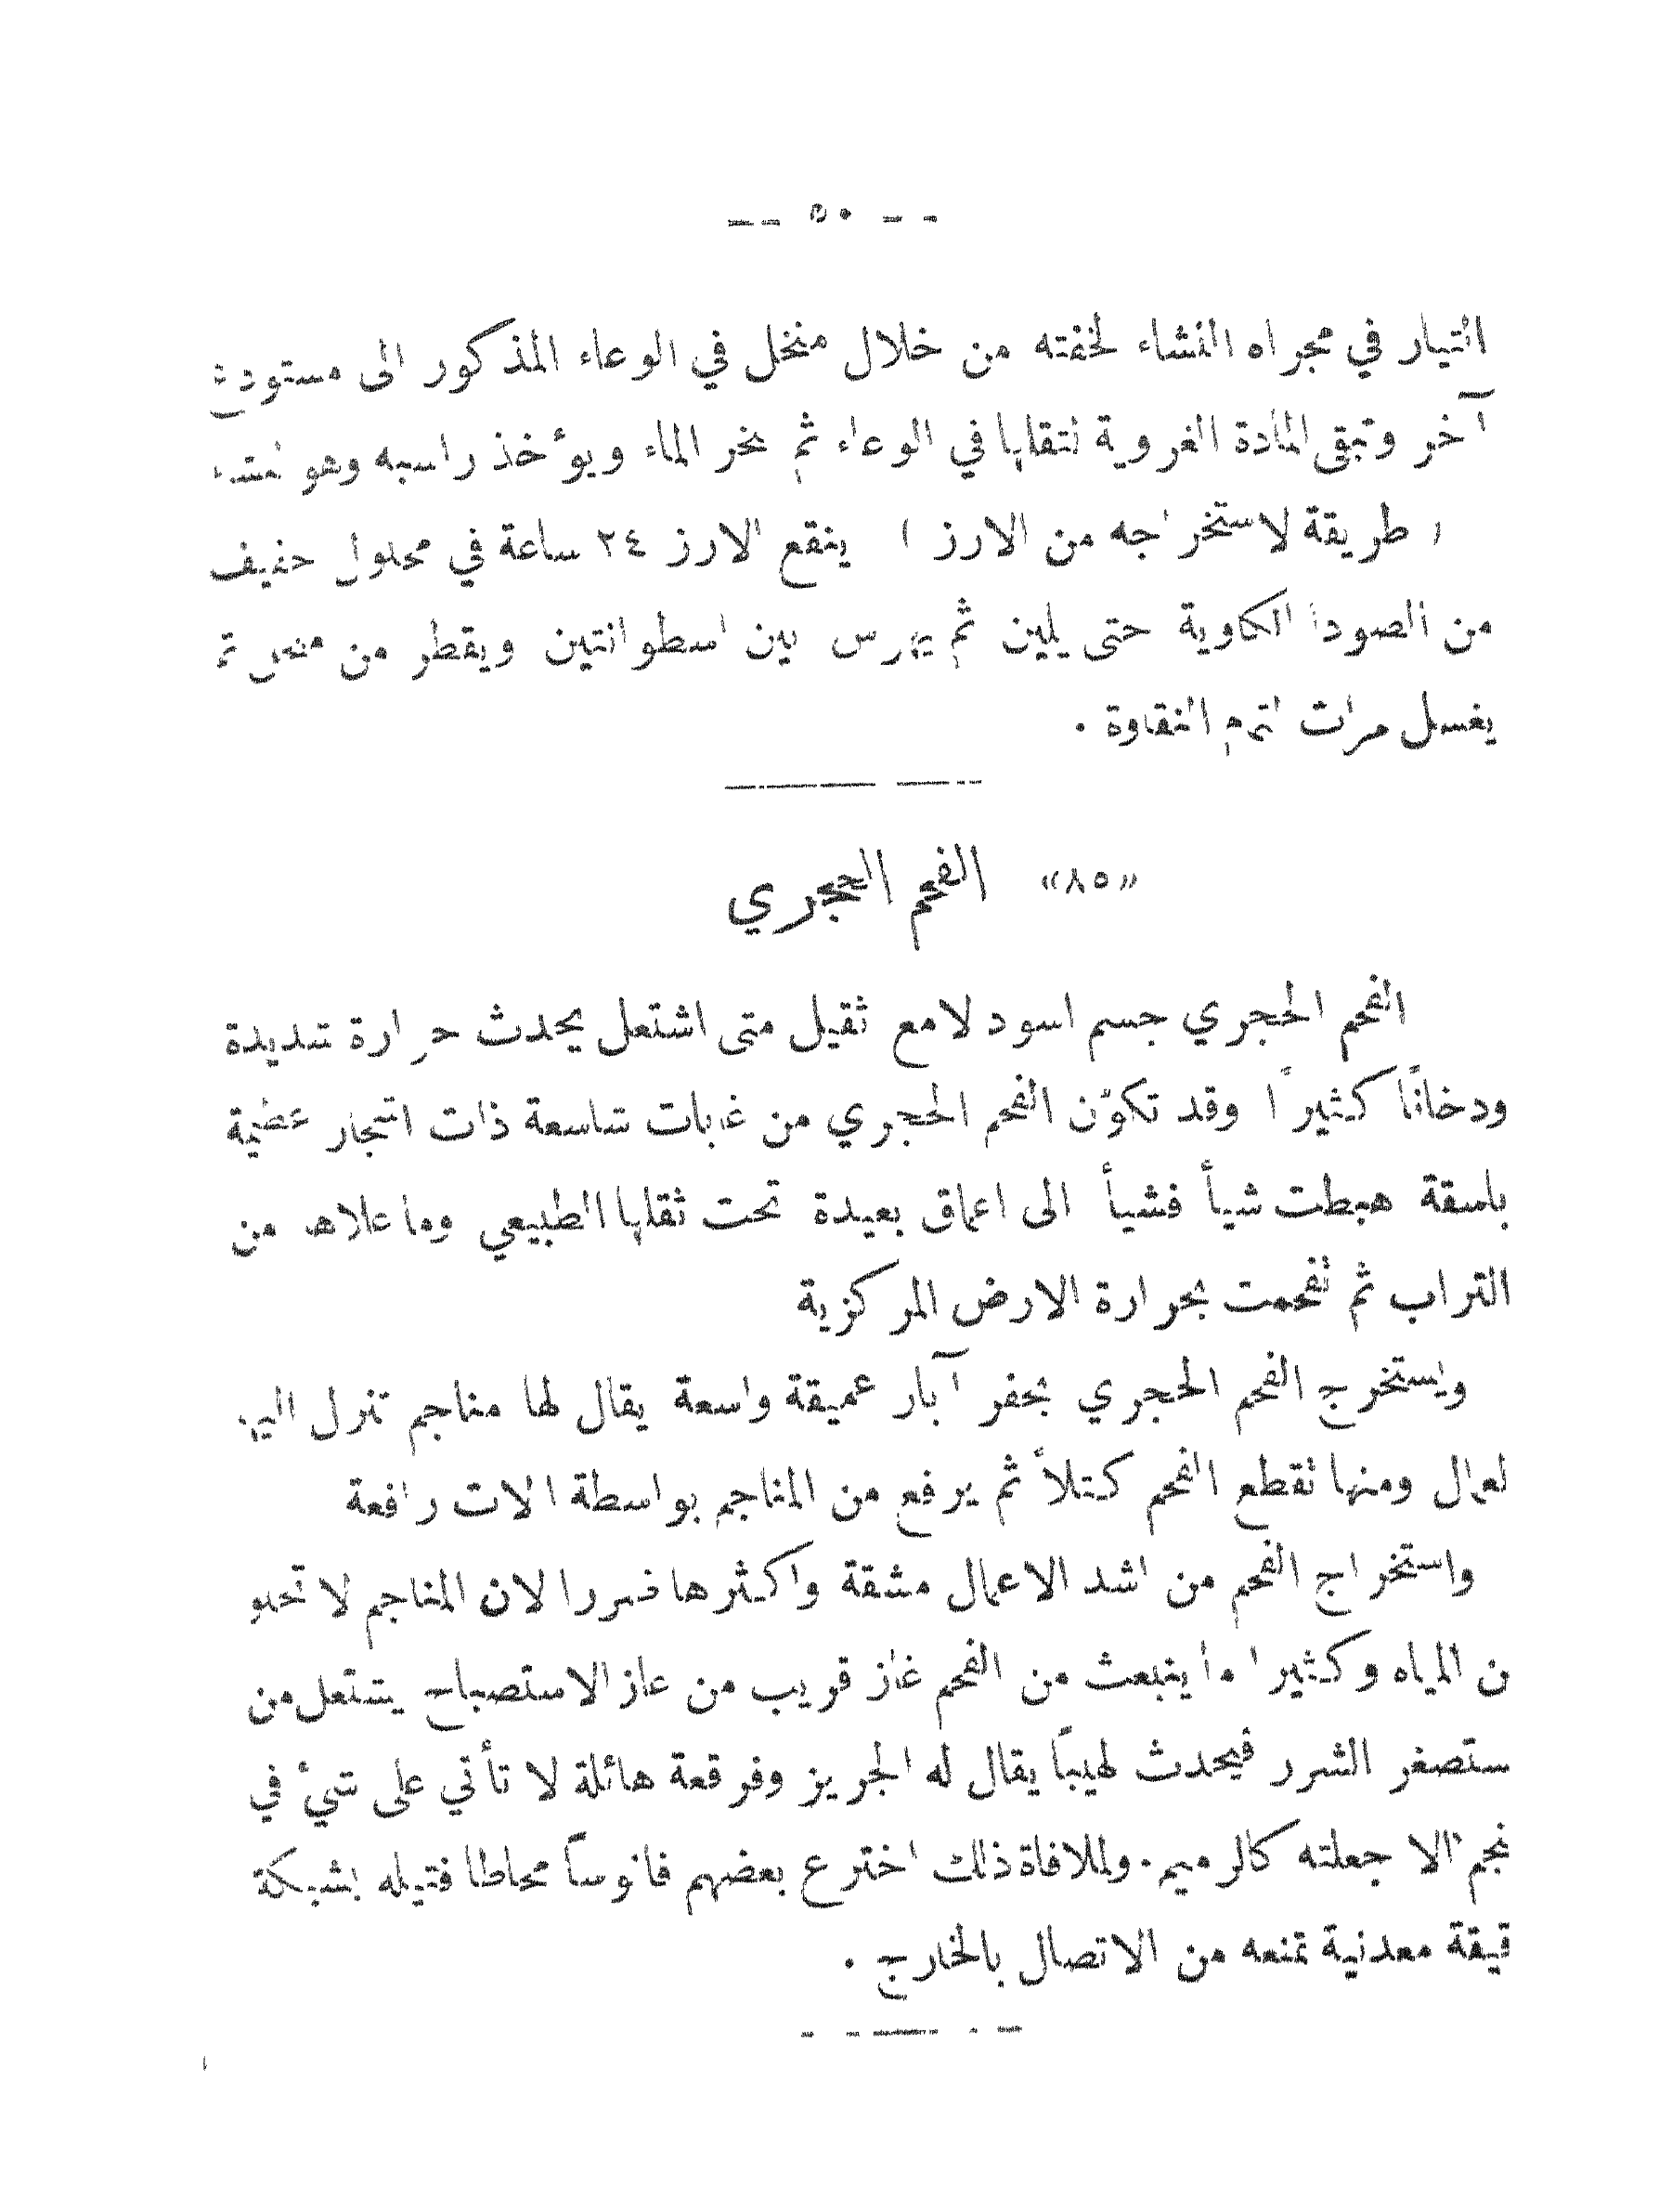 -- ٥٠ --
التيار في مجراه النشاء لخفته من خلال منخل في الوعاء المذكور الى مستودع
آخر وتبقى المادة الغروية لثقلها في الوعاء ثم يبخر الماء ويؤخذ راسبه وهو نشاء
( طريقة لاستخراجه من الارز ) ينقع الارز ٢٤ ساعة في محلول خفيف
من الصودا الكاوية حتى يلين ثم يهرس بين اسطوانتين ويقطر من منخل ثم
يغسل مرات النقاوة .
«٨٥» الفحم الحجري
الفحم الحجري جسم اسود لامع ثقيل متى اشتعل يحدث حرارة شديدة
ودخانًا كثيرًا وقد تكوّن الفحم الحجري من غابات شاسعة ذات اشجار عظيمة
باسقة هبطت شيأً فشيأً الى اعماق بعيدة تحت ثقلها الطبيعي وما علاها من
التراب ثم تفحمت بحرارة الارض المركزية
ويستخرج الفحم الحجري بحفر آبار عميقة واسعة يقال لها مناجم تنزل اليها
لعمال ومنها تقطع الفحم كتلاً ثم يرفع من المناجم بواسطة الات رافعة
واستخراج الفحم من اشد الاعمال مشقة واكثرها ضررا لان المناجم لا تخلو
ن المياه وكثيرا ما ينبعث من الفحم غاز قريب من غاز الاستصباح يشتعل من
ستصغر الشرر فيحدث لهيبًا يقال له الجريز وفرقعة هائلة لا تأتي على شيء في
نجم الا جعلته كالرميم . ولملافاة ذلك اخترع بعضهم فانوسًا محاطا فتيله بشبكة
قيقة معدنية تمنعه من الاتصال بالخارج .